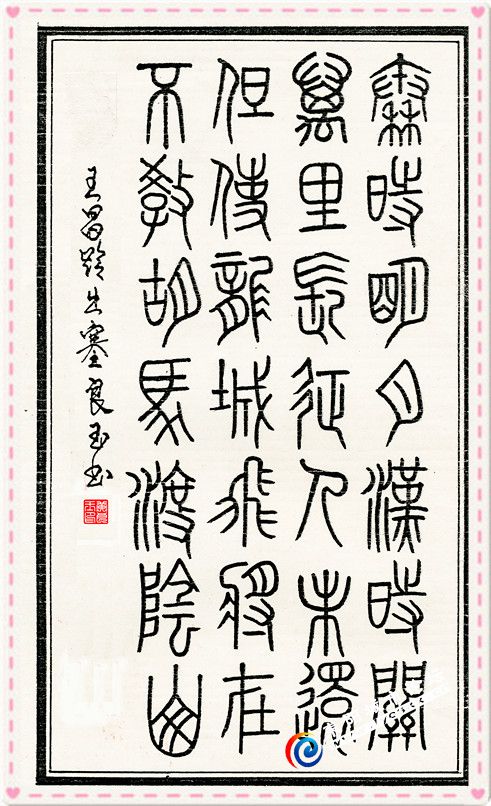 秦時明月漢時關
萬里長征人未還
但使龍城飛將在
不敎胡馬渡陰山
王昌齡出塞良玉书